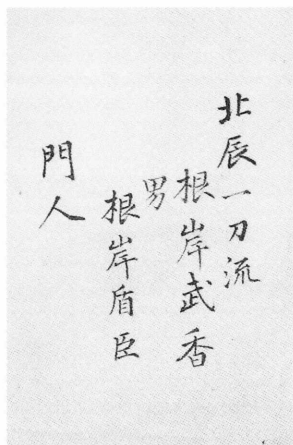 北辰一刀流
根岸武香
男
根岸盾臣
門人